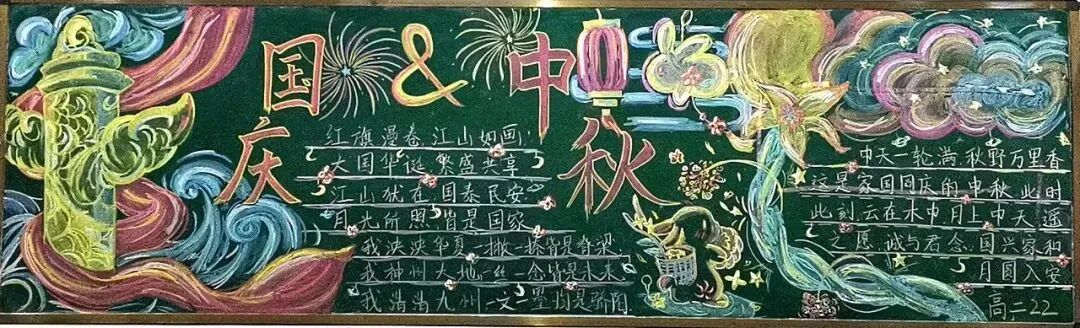 国庆
&
中秋
红旗漫卷,江山如画
大国华诞,繁盛共享
江山犹在,国泰民安
月光所照,皆是国家
我泱泱华夏,一撇一捺皆是脊梁
我神州大地,一丝一念皆是未来
我浩浩九州,一文一墨均是骄阳
中天一轮满,秋野万里香
这是家国同庆的中秋,此时
此刻,云在水中,月上中天,遥
之愿,诚与君念,国兴家和
月圆入安
高二22